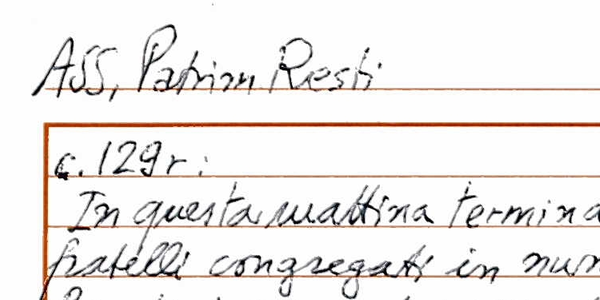 ASS, Patrim Resti
c. 129r:
In questa mattina termina
fratelli congregati in num